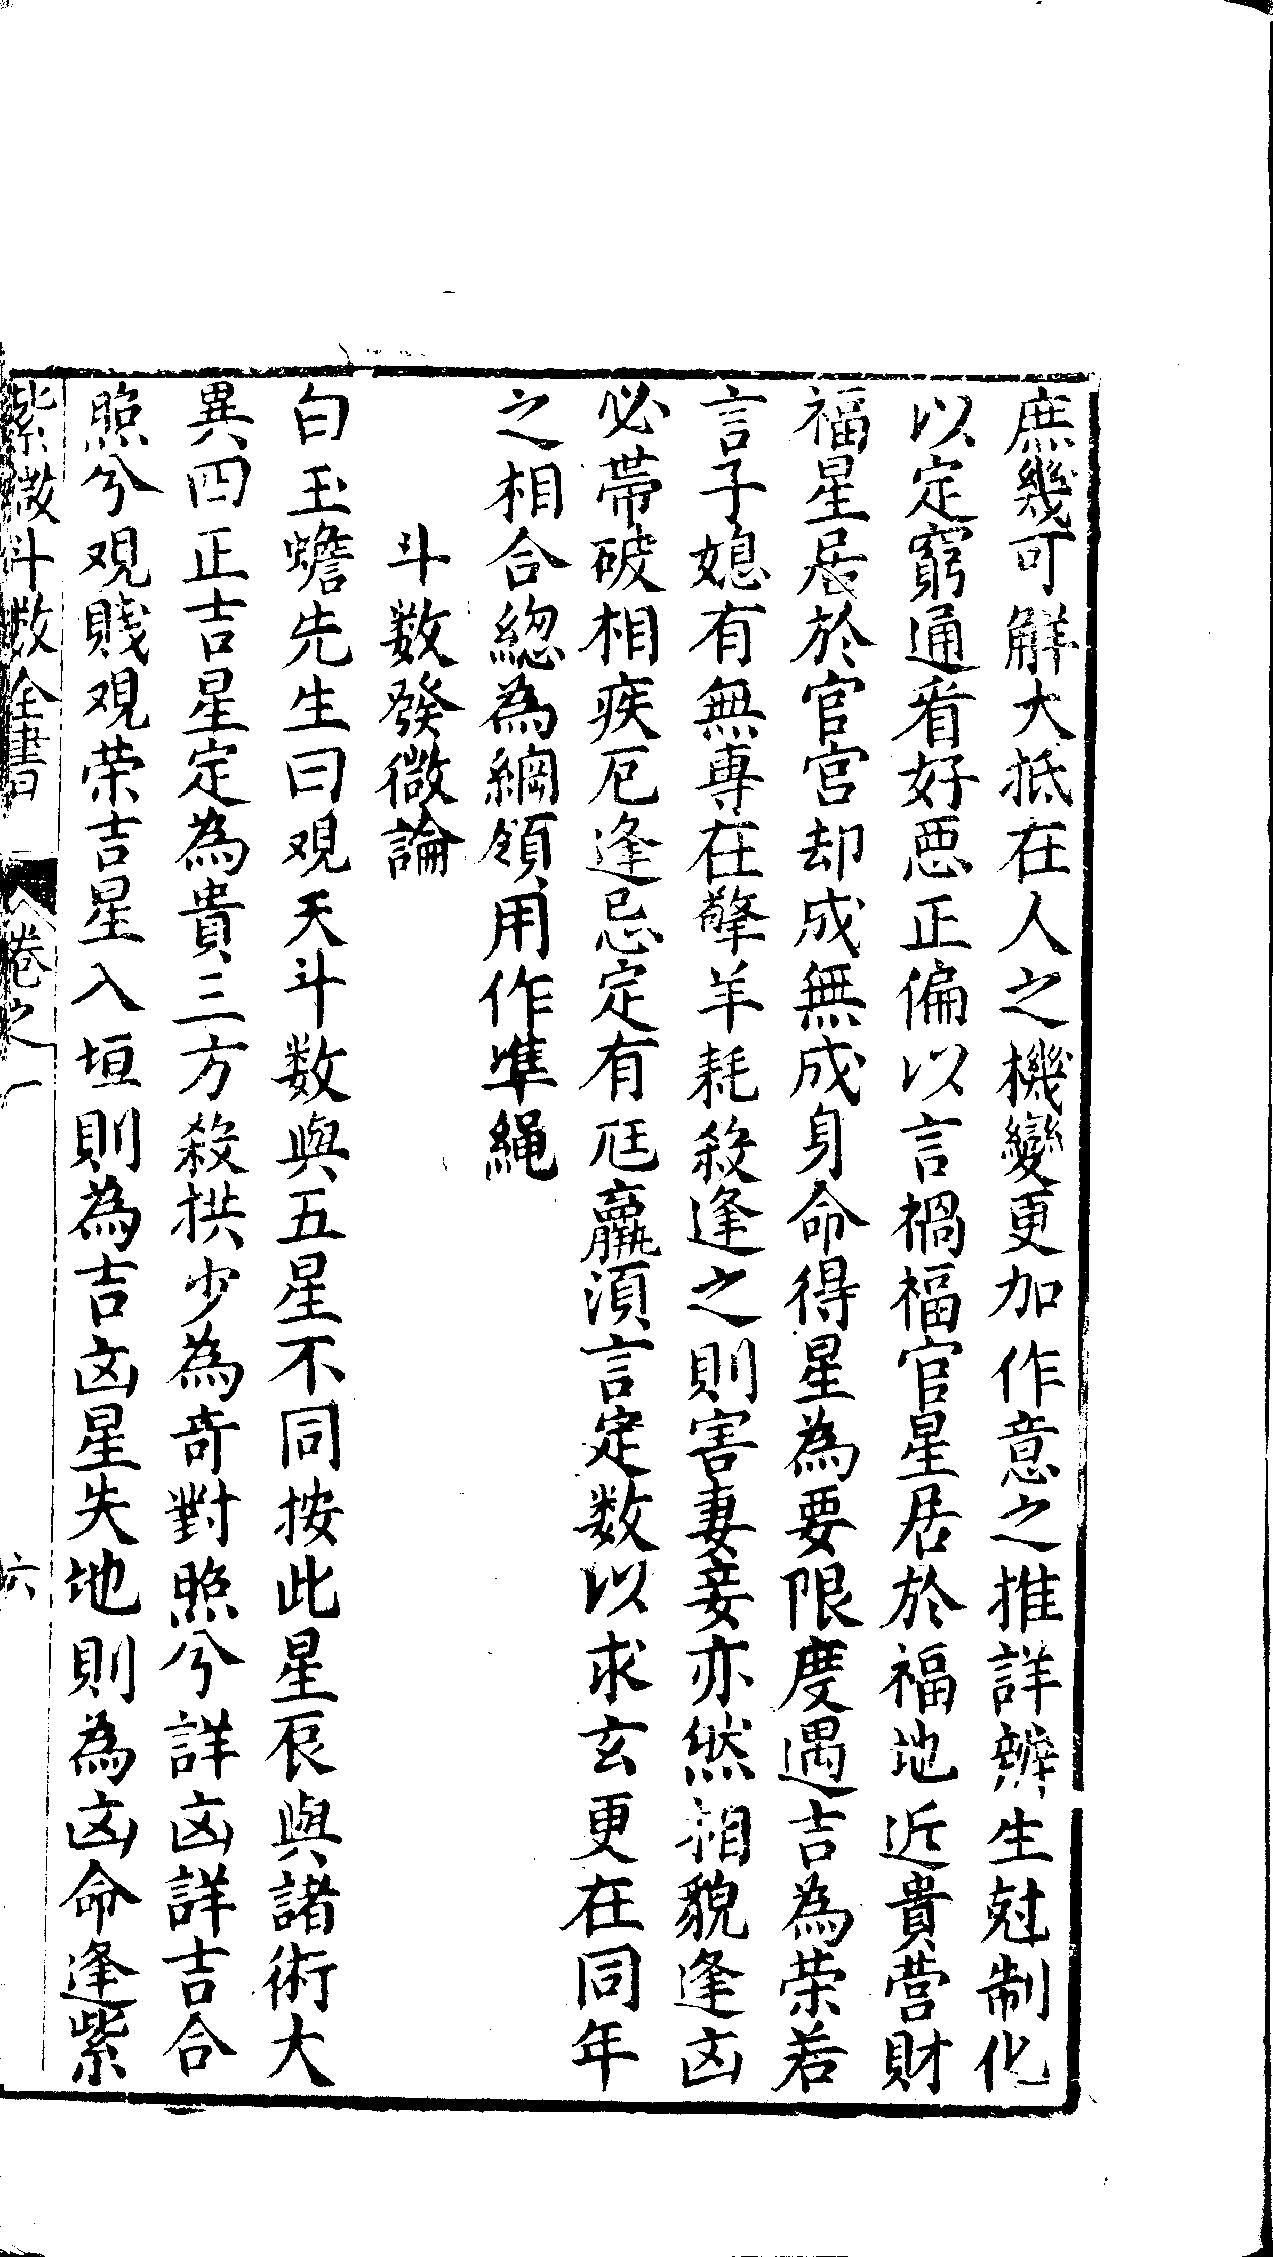 庶幾可解大抵在人之機變更加作意之推詳辨生尅制化
以定窮通看好悪正偏以言禍福官星居於福地近貴营財
福星居於官宫却成無成身命得星為要限度遇吉為荣若
言子媳有無專在擎羊耗殺逢之則害妻妾亦然相貌逢凶
必帶破相疾厄逢忌定有尫羸湏言定数以求玄更在同年
之相合緫為綱領用作凖绳
斗数發微論
白玉蟾先生曰观天斗数與五星不同按此星辰與諸術大
異四正吉星定為貴三方殺拱少為奇對照兮詳凶詳吉合
照兮观賤观荣吉星入垣則為吉凶星失地則為凶命逢紫
紫微斗数全書 卷之一 六